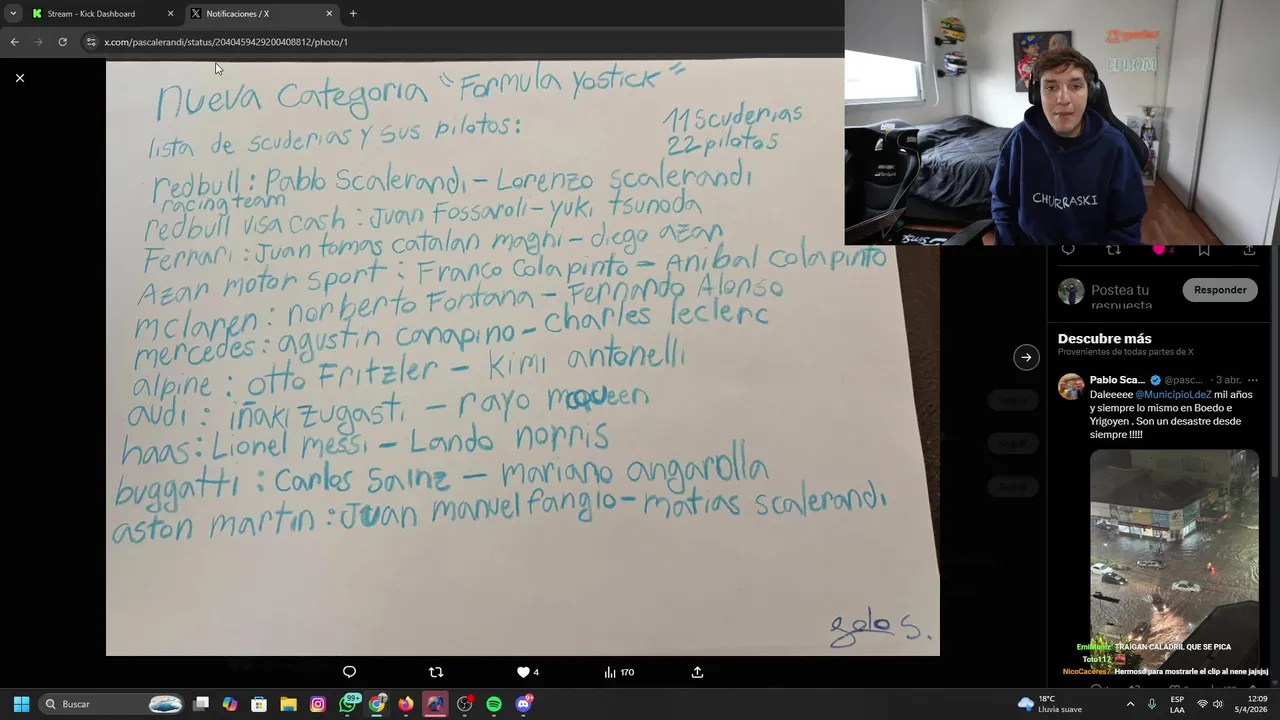 Stream - Kick Dashboard
Notificaciones / X
x.com/pascalerandi/status/2040459429200408812/photo/1
nueva categoria "Formula Yostick"
lista de scuderias y sus pilotos:
11 scuderias
22 pilotos
redbull: Pablo Scalerandi - Lorenzo scalerandi
racing team
redbull visa cash: Juan Fossaroli - yuki tsunoda
Ferrari: Juan tomas catalan magni - diego azar
Azar motor sport: Franco Colapinto - Anibal colapinto
mclaren: norberto Fontana - Fernando Alonso
mercedes: agustin canapino - charles leclerc
alpine: otto Fritzler - kimi antonelli
audi: iñaki zugasti - rayo mcqueen
haas: Lionel messi - Lando norris
buggatti: Carlos Sainz - mariano angarolla
aston martin: Juan manuel fangio - matias scalerandi
4
170
CHURRASKI
4
Postea tu
respuesta
Responder
Descubre más
Provenientes de todas partes de X
Pablo Sca... @pasc... · 3 abr. ...
Daleeeee @MunicipioLdeZ mil años
y siempre lo mismo en Boedo e
Yrigoyen . Son un desastre desde
siempre !!!!!
EmiMuniz TRAIGAN CALADRIL QUE SE PICA
Toto117
NicoCaceres7 Hermoso para mostrarle el clip al nene jajsjsj
Buscar
99+
18°C
Lluvia suave
ESP
LAA
12:09
5/4/2026